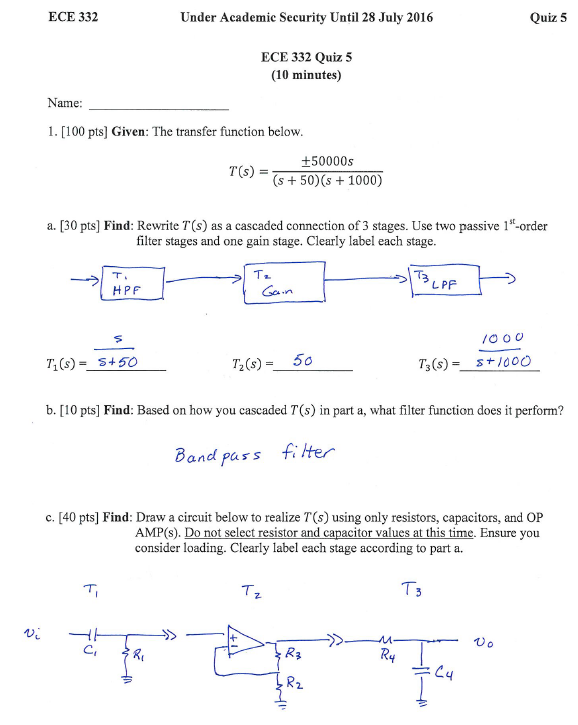 ECE 332 Under Academic Security Until 28 July 2016 Quiz 5
ECE 332 Quiz 5
(10 minutes)
Name: ____________________
1. [100 pts] Given: The transfer function below.
T(s) = ±50000s / (s + 50)(s + 1000)
a. [30 pts] Find: Rewrite T(s) as a cascaded connection of 3 stages. Use two passive 1st-order
filter stages and one gain stage. Clearly label each stage.
T1 T2 T3
HPF Gain LPF
T1(s) = s / s+50 T2(s) = 50 T3(s) = 1000 / s+1000
b. [10 pts] Find: Based on how you cascaded T(s) in part a, what filter function does it perform?
Bandpass filter
c. [40 pts] Find: Draw a circuit below to realize T(s) using only resistors, capacitors, and OP
AMP(s). Do not select resistor and capacitor values at this time. Ensure you
consider loading. Clearly label each stage according to part a.
T1 T2 T3
vi C1 R1 + - R3 R2 R4 C4 vo